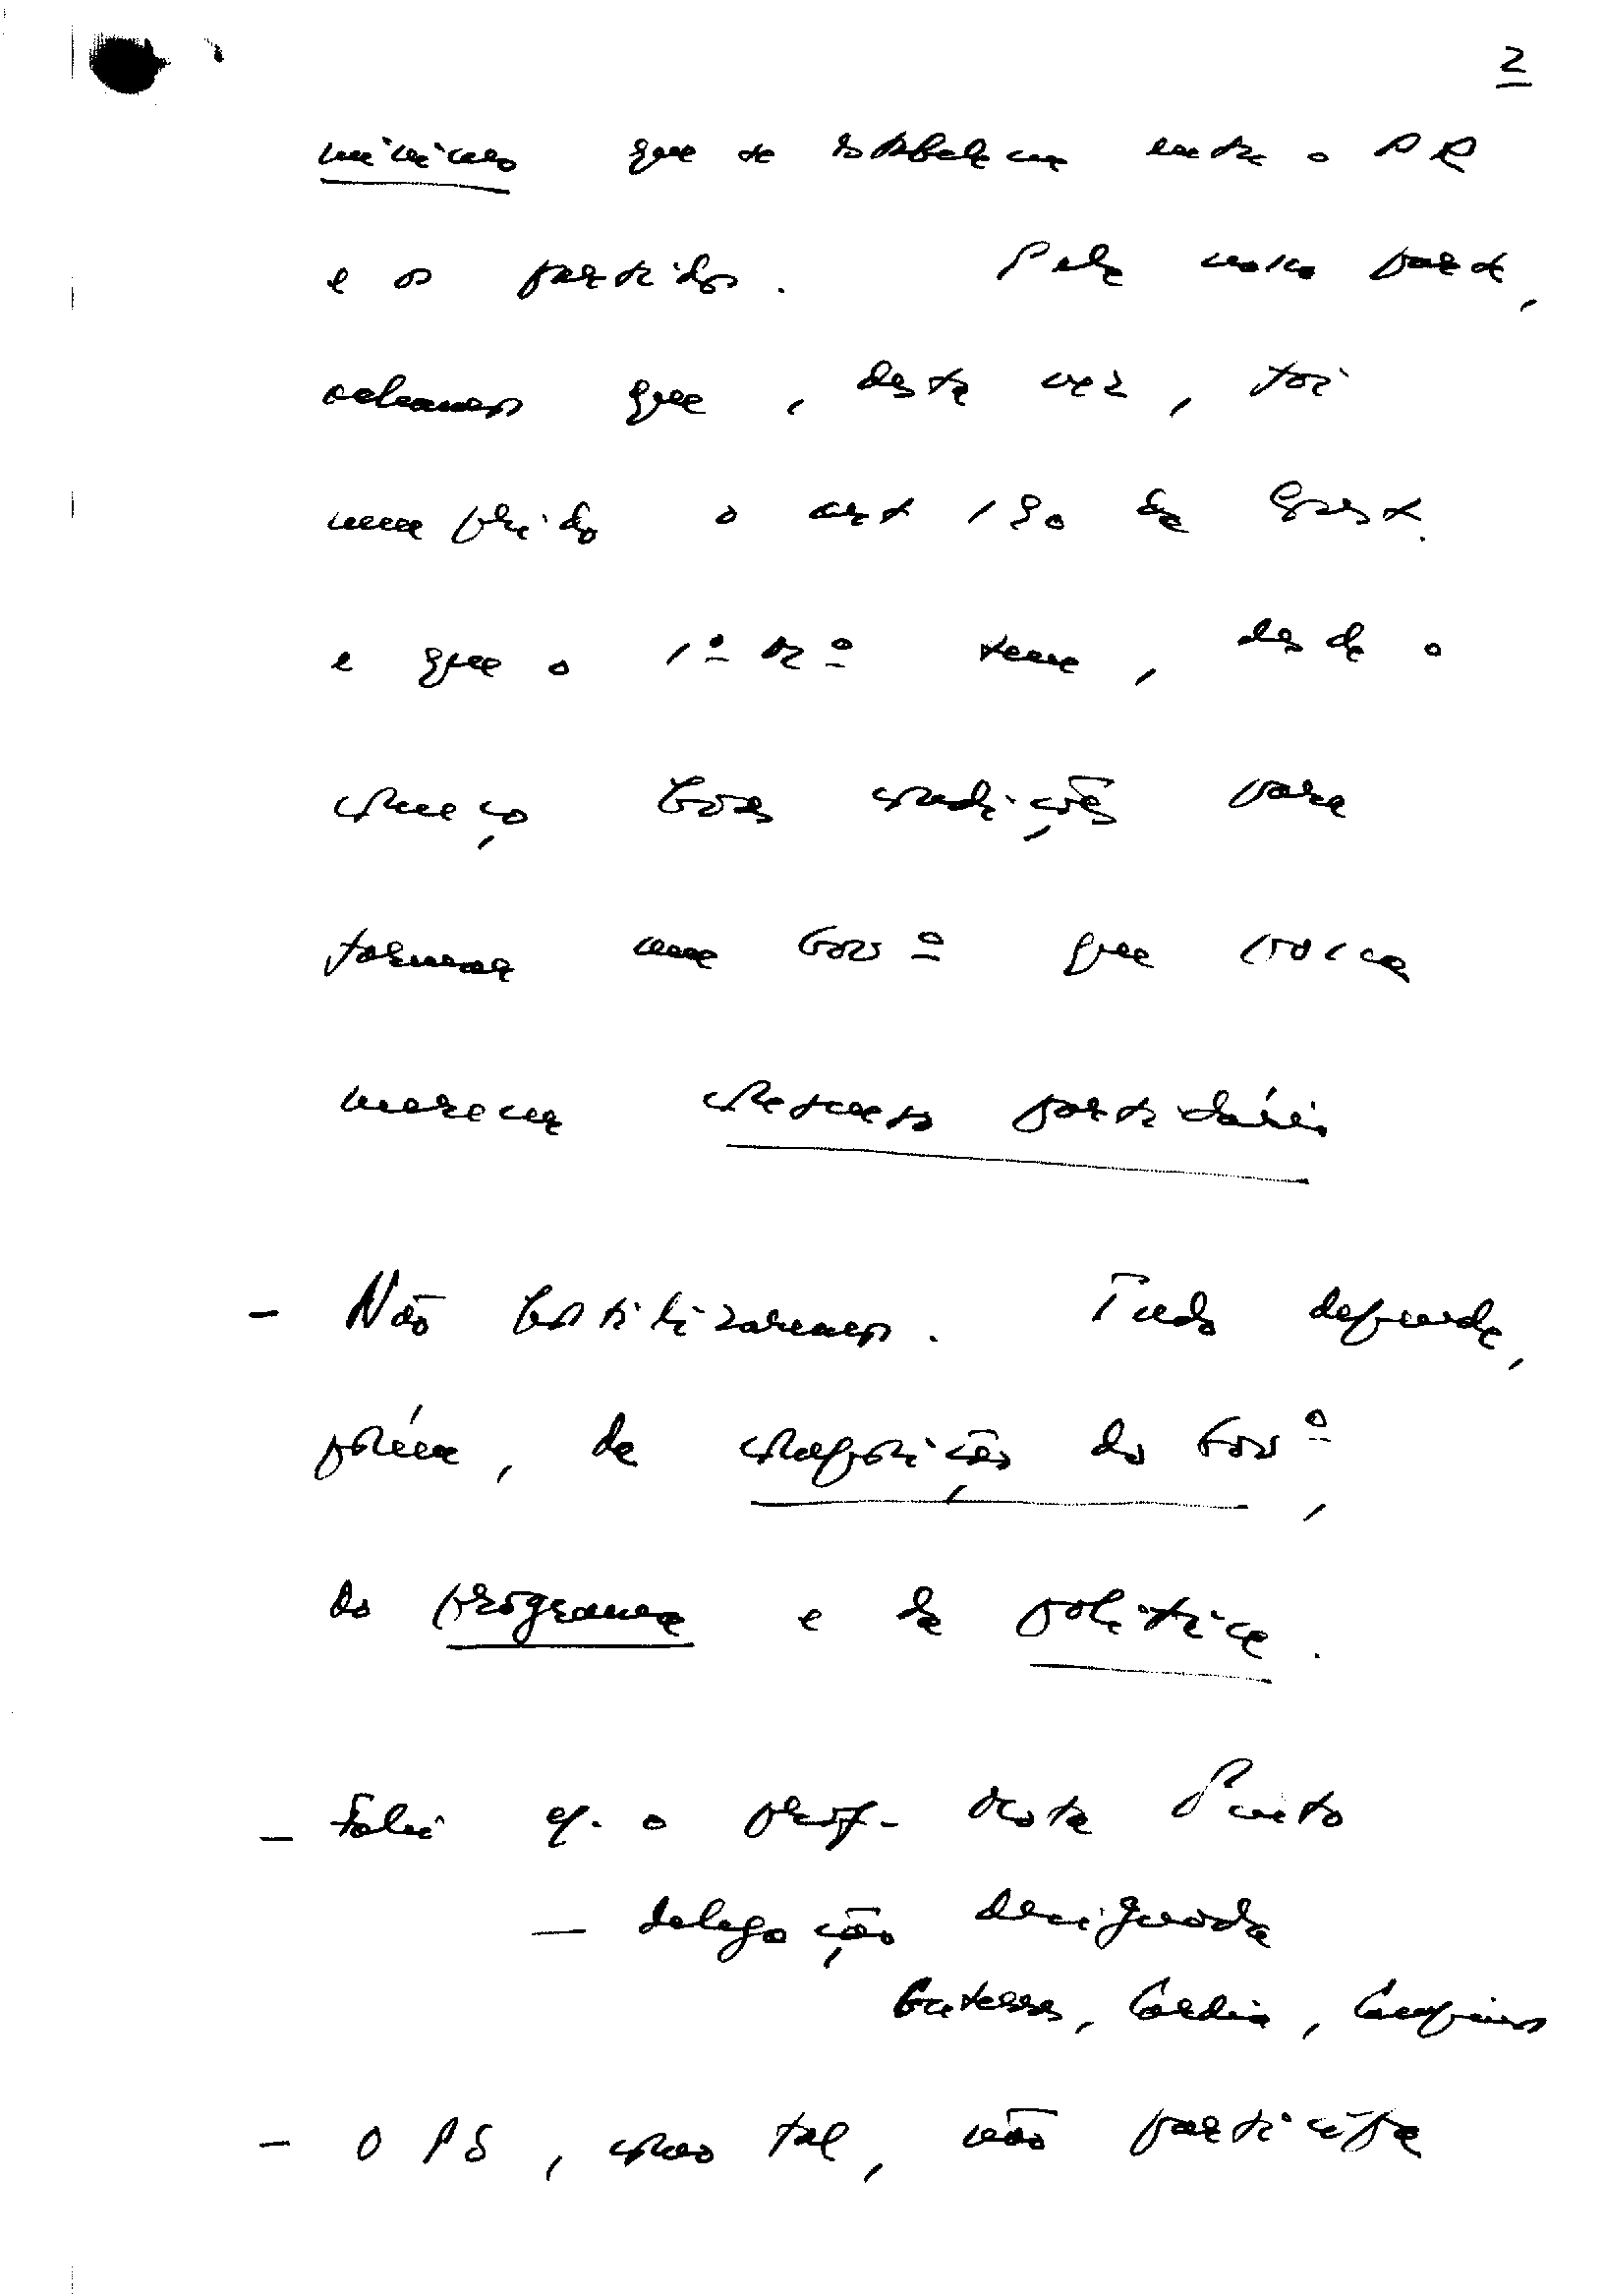 2
mínimo que se estabeleceu entre o PR
e os partidos. Pela nossa parte,
achamos que, desta vez, foi
cumprido o art 190 da Const.
e que o 1º Mº teve, desde o
começo boas condições para
formar um Govº que possa
merecer consenso partidário
- Não hostilizaremos. Tudo depende,
porém, da composição do Govº,
do programa e da política.
- Falei c/. o prof. Mota Pinto
- delegação designada
Guterres, Cardia, Campinos
- O PS, como tal, não participa